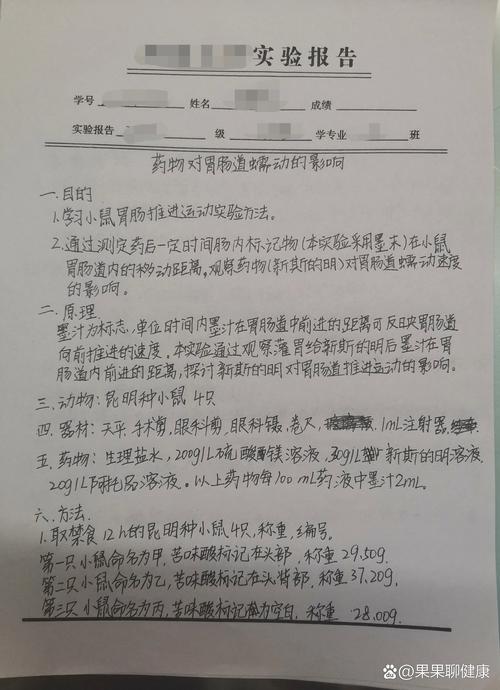 实验报告
学号 姓名 成绩
实验报告 级 学专业 班
药物对胃肠道蠕动的影响
一.目的
1.学习小鼠胃肠推进运动实验方法。
2.通过测定药后一定时间肠内标记物(本实验采用墨末)在小鼠
胃肠道内的移动距离,观察药物(新斯的明)对胃肠道蠕动速度
的影响。
二.原理
墨汁为标志,单位时间内墨汁在胃肠道中前进的距离可反映胃肠道
向前推进的速度.本实验通过观察灌胃给新斯的明后墨汁在胃
肠道内前进的距离,探讨新斯的明对胃肠道推进运动的影响。
三.动物:昆明种小鼠 4只
四.器材:天平,手术剪,眼科剪,眼科镊,卷尺, 1mL注射器
五.药物:生理盐水,200g/L硫酸镁溶液, 新斯的明溶液,
20g/L阿托品溶液。以上药物每100mL药液中墨汁2mL。
六.方法
1.取禁食12h的昆明种小鼠4只,称重,编号。
第一只小鼠命名为甲,苦味酸标记在头部,称重29.50g.
第二只小鼠命名为乙,苦味酸标记在头背部,称重37.20g.
第三只小鼠命名为丙,苦味酸标记为空白,称重 28.00g.
@果果聊健康